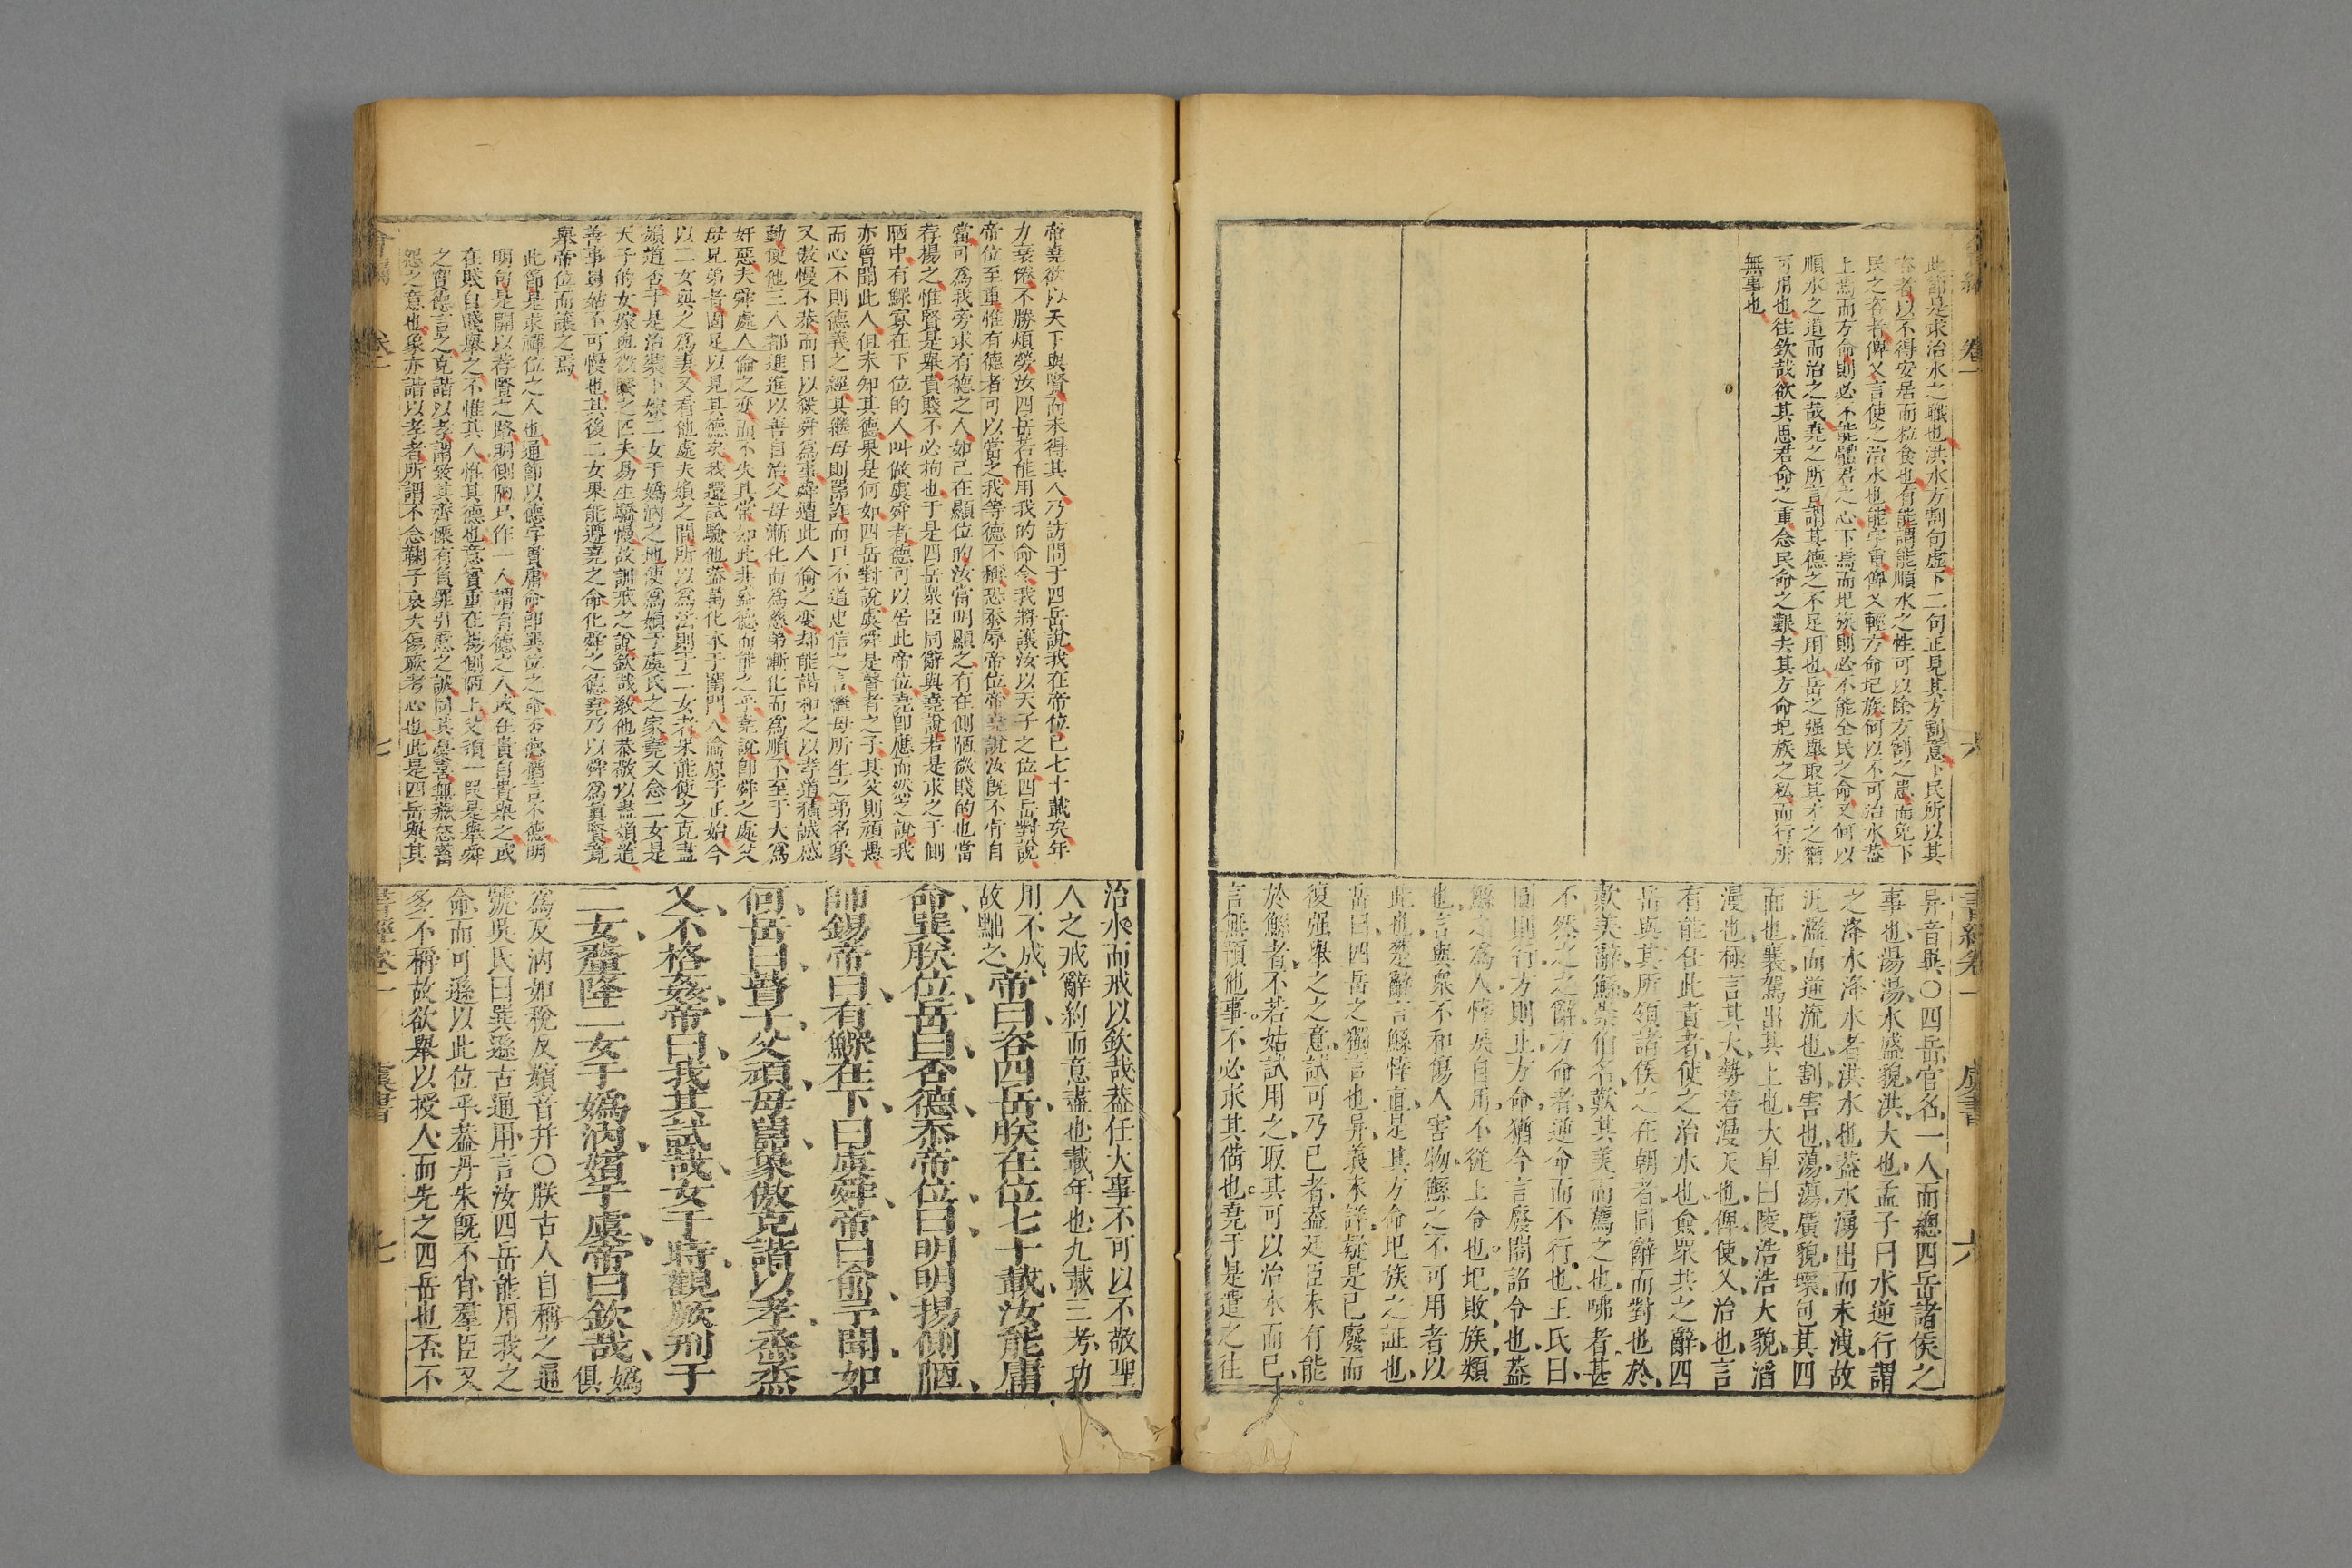 此節是求治水之職也洪水方割句虛下二句正見其方割意下民所以其
咨者以不得安居而粒食也有能謂能順水之性可以除方割之患而免下
民之咨者俾乂言使之治水也能字重俾乂輕方命圮族何以不可治水蓋
上焉而方命則必不能體君之心下焉而圮族則必不能全民之命又何以
順水之道而治之哉堯之所言謂其德之不足用也岳之强舉取其才之猶
可用也往欽哉欲其思君命之重念民命之艱去其方命圮族之私而行所
無事也
書經卷一 虞書 六
异音異○四岳官名一人而總四岳諸侯之
事也湯湯水盛貌洪大也孟子曰水逆行謂
之洚水洚水者洪水也蓋水湧出而未洩故
汎濫而逆流也割害也蕩蕩廣貌懷包其四
面也襄駕出其上也大阜曰陵浩浩大貌滔
漫也極言其大勢若漫天也俾使乂治也言
有能任此責者使之治水也僉眾共之辭四
岳與其所領諸侯之在朝者同辭而對也於
歎美辭鯀崇伯名歎其美而薦之也咈者甚
不然之之辭方命者逆命而不行也王氏曰
圓則行方則止方命猶今言廢閣詔令也蓋
鯀之為人悻戾自用不從上令也圮敗族類
也言與衆不和傷人害物鯀之不可用者以
此也楚辭言鯀婞直是其方命圮族之証也
岳曰四岳之獨言也异義未詳疑是已廢而
復强舉之之意試可乃已者蓋廷臣未有能
於鯀者不若姑試用之取其可以治水而已
言無預他事不必求其備也堯于是遣之往
帝堯欲以天下與賢而未得其人乃訪問于四岳說我在帝位已七十載矣年
力衰倦不勝煩勞汝四岳若能用我的命令我將讓汝以天子之位四岳對說
帝位至重惟有德者可以當之我等德不稱恐忝辱帝位帝堯說汝既不肯自
當可為我旁求有德之人如已在顯位的汝當明顯之有在側陋微賤的也當
荐揚之惟賢是舉貴賤不必拘也于是四岳眾臣同辭與堯說若是求之于側
陋中有鰥寡在下位的人叫做虞舜者德可以居此帝位堯即應而然之說我
亦曾聞此人但未知其德果是何如四岳對說虞舜是瞽者之子其父則頑愚
而心不則德義之經其繼母則嚚詐而口不道忠信之言繼母所生之弟名象
又傲慢不恭而日以殺舜為事舜遭此人倫之變却能諧和之以孝道積誠感
動使他三人都進進以善自治父母漸化而為慈弟漸化而為順不至于大為
奸惡夫舜處人倫之変而不失其常如此非盛德而能之乎堯說即舜之處父
母兄弟者固足以見其德矣我還試驗他蓋萬化本于閨門人倫原于正始今
以二女與之為妻又看他處夫婦之間所以為法則于二女者果能使之克盡
婦道否于是治裝下嫁二女于嬀汭之地使為婦于虞氏之家堯又念二女是
天子的女嫁與微賤之匹夫易生驕慢故訓戒之說欽哉教他恭敬以盡婦道
善事舅姑不可慢也其後二女果能遵堯之命化舜之德堯乃以舜為真賢竟
舉帝位而讓之焉
此節是求禪位之人也通節以德字貫庸命即巽位之命否德猶言不德明
明句是開以荐賢之路明側陋只作一人謂有德之人或在貴自貴舉之或
在賤自賤舉之不惟其人惟其德也意實重在揚側陋上父頑一段是舉舜
之實德言之克諧以孝謂致其齊慄有負罪引慝之誠同其憂喜無藏怒蓄
怨之意也象亦諧以孝者所謂不念鞠子哀大傷厥考心也此是四岳舉其
治水而戒以欽哉蓋任大事不可以不敬聖
人之戒辭約而意盡也載年也九載三考功
用不成故黜之帝曰咨四岳朕在位七十載汝能庸
命巽朕位岳曰否德忝帝位曰明明揚側陋
師錫帝曰有鰥在下曰虞舜帝曰俞予聞如
何岳曰瞽子父頑母嚚象傲克諧以孝烝烝
乂不格姦帝曰我其試哉女于時觀厥刑于
二女釐降二女于嬀汭嬪于虞帝曰欽哉嬀俱
為反汭如稅反嬪音并○朕古人自稱之通
號吳氏曰巽遜古通用言汝四岳能用我之
命而可遜以此位乎蓋丹朱既不肖羣臣又
多不稱故欲舉以授人而先之四岳也否不
書經卷一 虞書 七